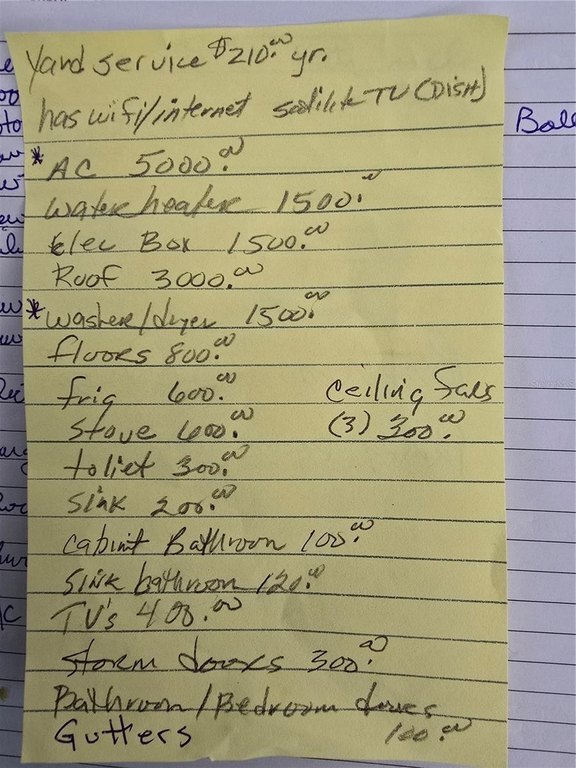 Yard service $210.00 yr.
has wifi/internet satilite TV (DISH)
* AC 5000.00
Water heater 1500.00
Elec Box 1500.00
Roof 3000.00
* Washer/dryer 1500.00
floors 800.00
frig 600.00 Ceiling Fans
Stove 600.00 (3) 300.00
toliet 300.00
Sink 200.00
Cabint Bathroom 100.00
Sink bathroom 120.00
TV's 400.00
Storm doors 300.00
Bathroom/Bedroom doors
Gutters 100.00